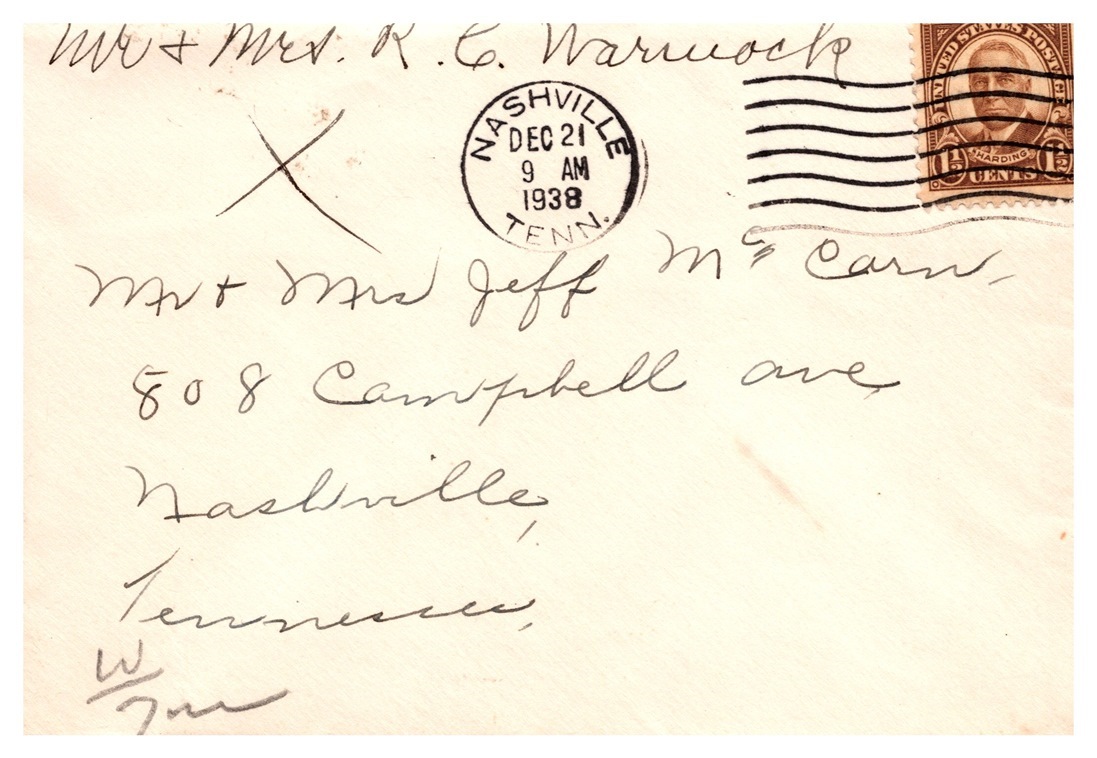 Mr & Mrs. R. C. Warwock
UNITED STATES POSTAGE
HARDING
1½ CENTS 1½
NASHVILLE
DEC 21
9 AM
1938
TENN.
X
Mr & Mrs Jeff Mc Carn,
808 Campbell ave,
Nashville,
Tennessee,
W